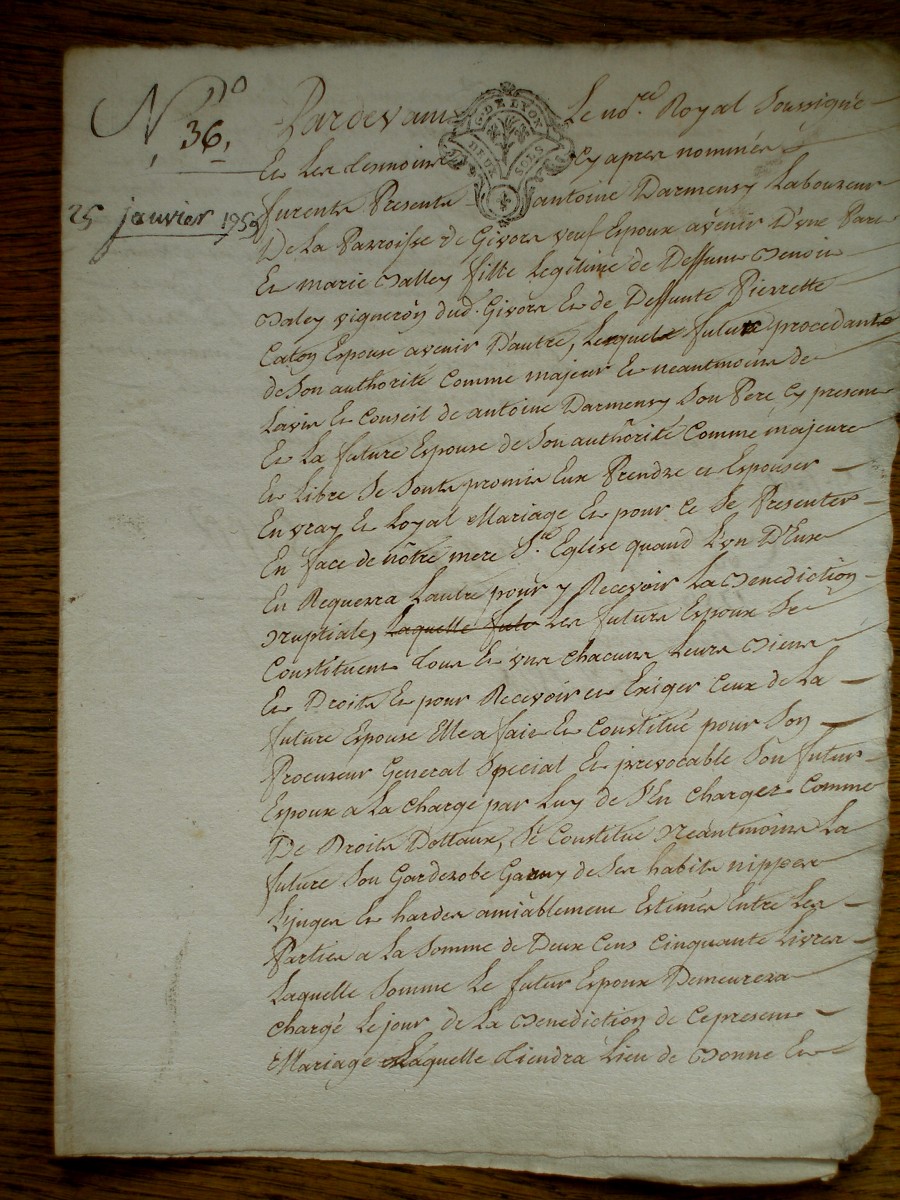 N.º 36.
25 janvier 1759
G. DE LYON
DEUX SOLS
Pardevant Le no.re Royal Soussigné
Et Les temoins Cy apres nommés
furents Presents antoine Darmensy Laboureur
De La Parroisse de Givors veuf Espoux avenir D'une Part
Et marie Valley fille Legitime de Deffunt Benoit
Valey vigneron dud. Givors Et de Deffunte Pierrette
Caton Espouse avenir D'autre, Lesquels futurs procedants
de Son authorité Comme majeur Et neantmoins de
Lavis Et Conseil de antoine Darmensy Son Pere Cy present
Et La future Espouse de Son authôrité Comme majeure
Et Libre Se Sonts promis Eux Prendre et Espouser
En vray Et Loyal Mariage Et pour Ce Se Presenter
En face de nôtre mere S.te Eglise quand L'un D'Eux
En Requerra Lautre pour y Recevoir La Benediction
Nuptiale, Laquelle futu Les futurs Espoux Se
Constituent tous Et uns chacuns Leurs Biens
Et Droits Et pour Recevoir et Exiger Ceux de La
future Espouse Elle a fait Et Constitué pour Son
Procureur General Special Et jrrevocable Son futur
Espoux a La Charge par Luy de S'En Charger Comme
De Droits Dottaux, Se Constitue Neantmoins La
future Son Garderobe Garny de Ses habits nippes
Linges Et hardes amiablement Estimés Entre Les
Parties a La Somme de Deux Cens Cinquante Livres
Laquelle Somme Le futur Espoux Demeurera
chargé Le jour de La Benediction de Ce present
Mariage Laquelle tiendra Lieu de Bonne Et